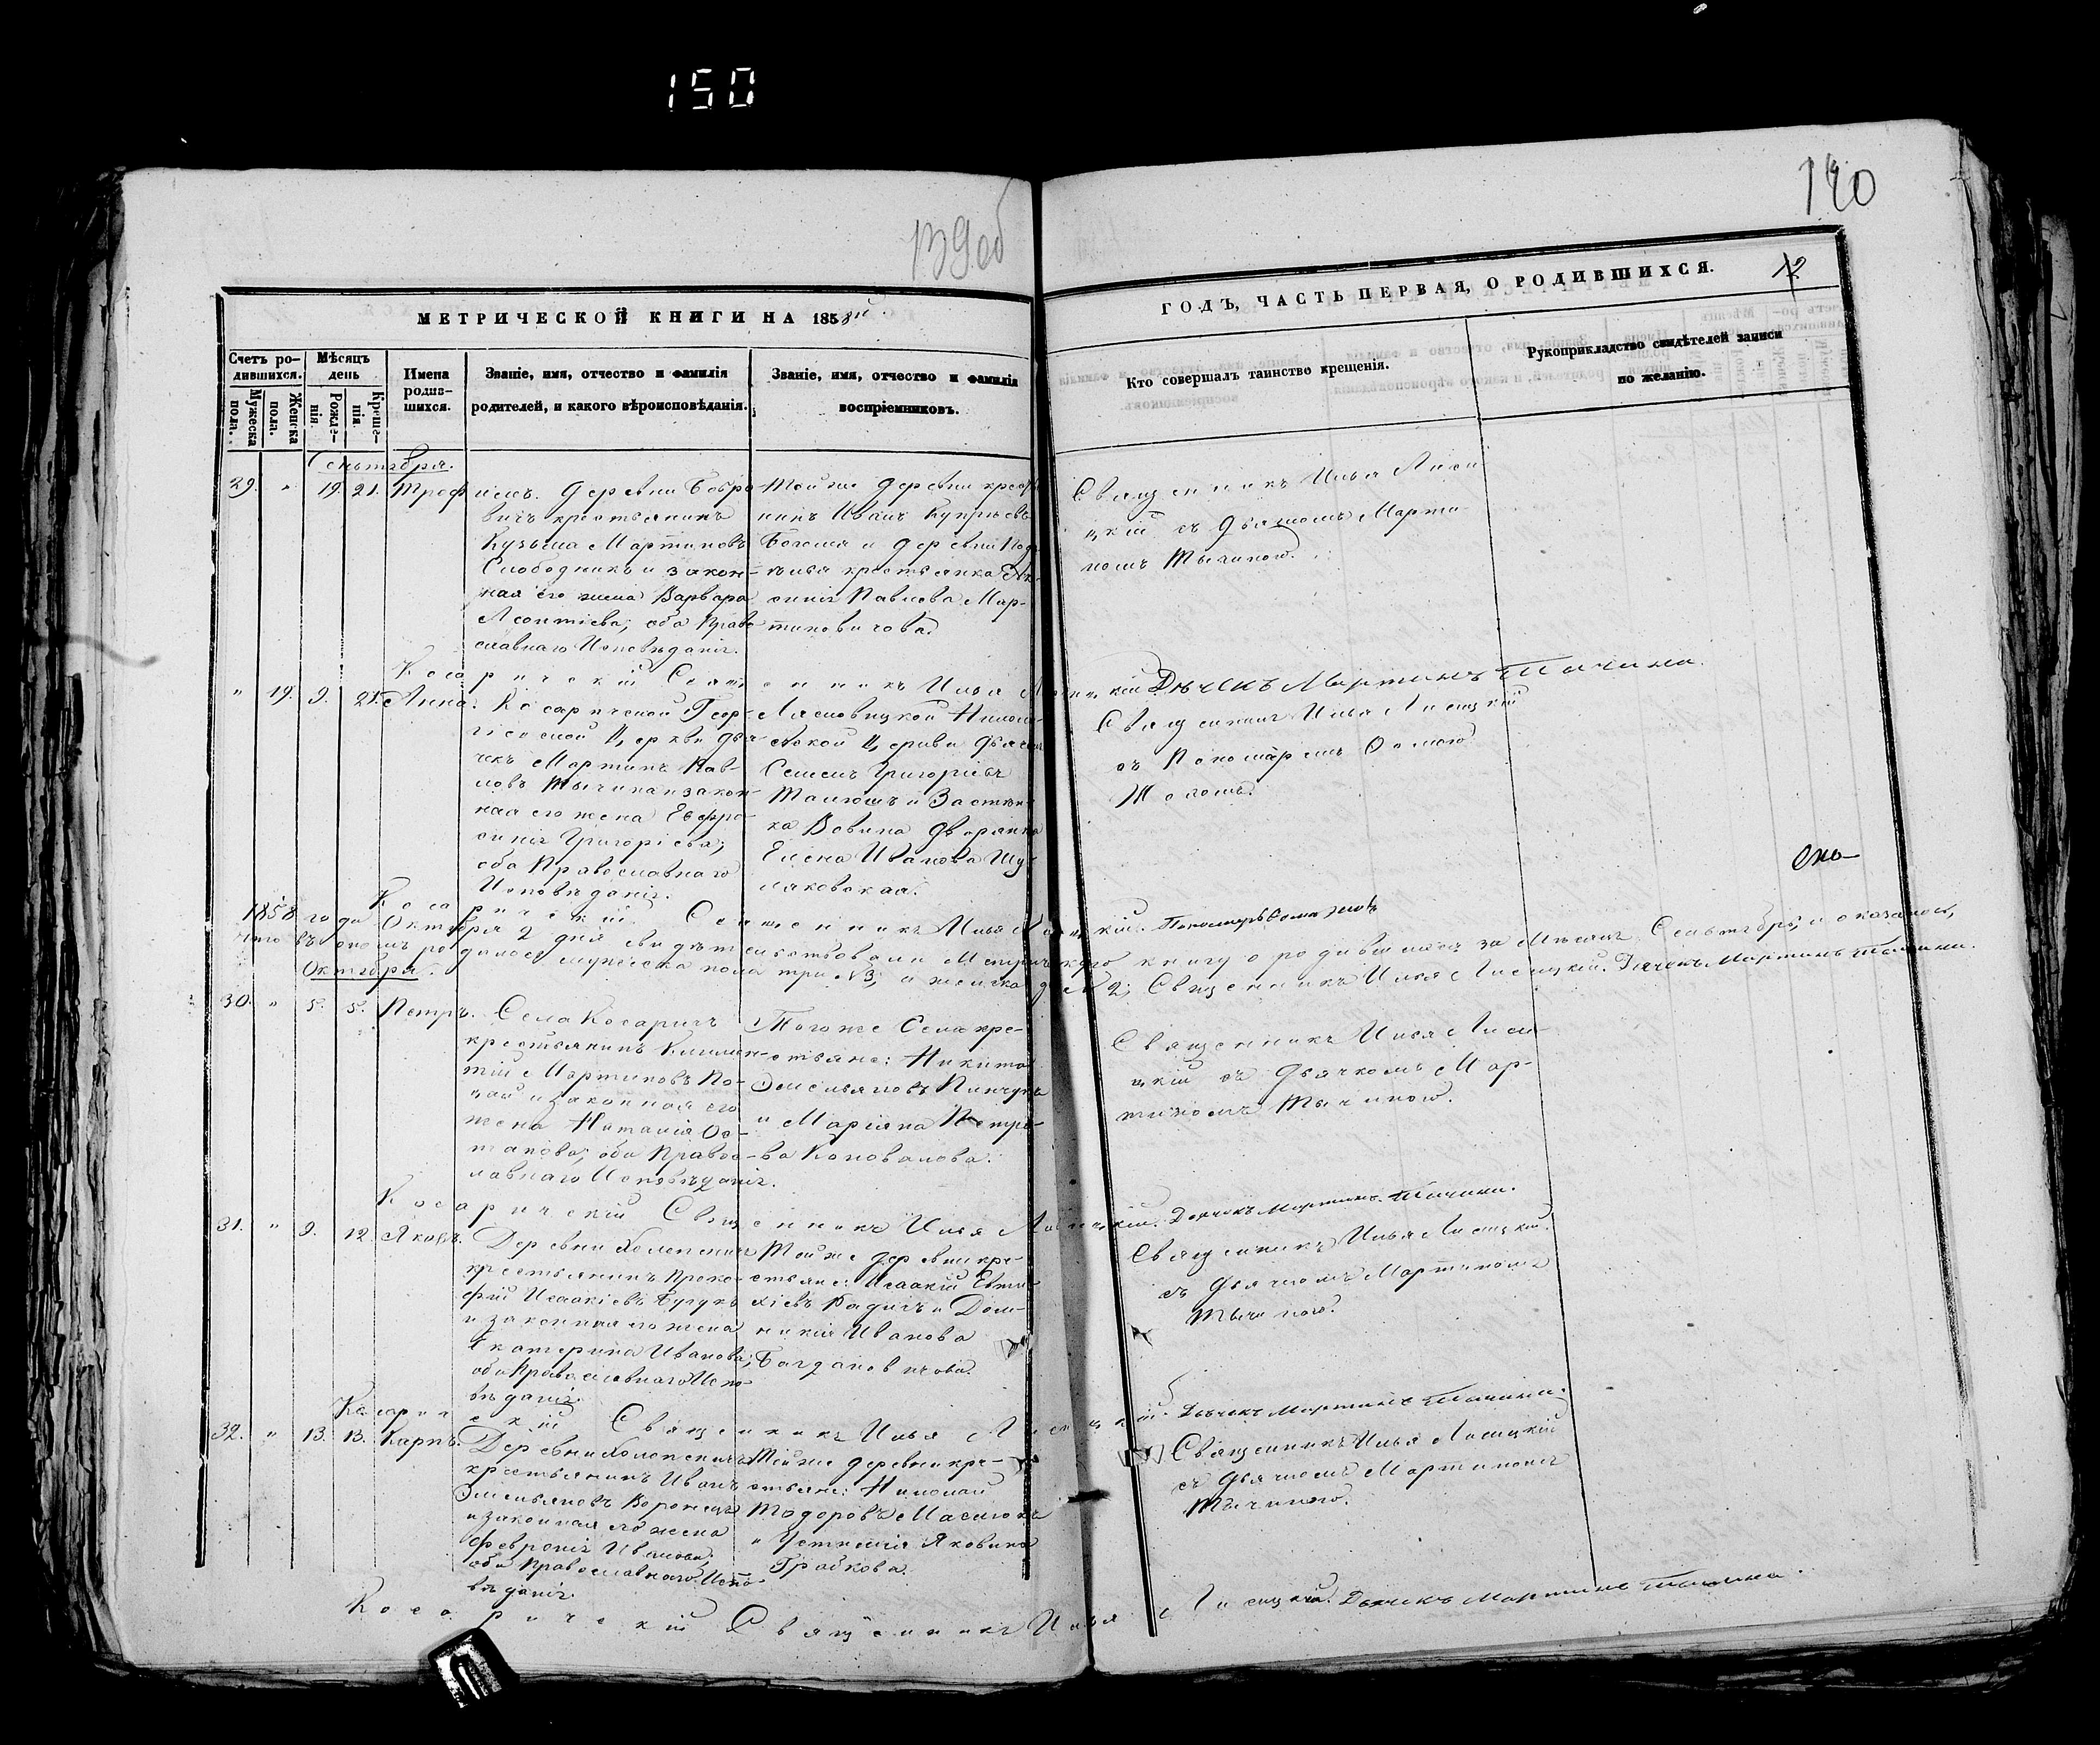 150
139об
140
МЕТРИЧЕСКОЙ КНИГИ НА 1858й
ГОДЪ, ЧАСТЬ ПЕРВАЯ, О РОДИВШИХСЯ.
12
Счетъ ро-
дившихся.
Мужеска пола.
Женска пола.
Мѣсяцъ
день
Рожде-
нія.
Креще-
нія.
Имена
родив-
шихся.
Званіе, имя, отчество и фамилія
родителей, и какого вѣроисповѣданія.
Званіе, имя, отчество и фамилія
воспріемниковъ.
Кто совершалъ таинство крещенія.
Рукоприкладство свидѣтелей записи
по желанію.
Сентября.
29. " 19. 21.
деревни Бобро-
вичъ крестьянинъ
Кузьма Мартиновъ
Слободникъ и закон-
ная его жена Варвара
Леонтіева, оба Право-
славнаго Исповѣданія.
Той же деревни крестья
нинъ Иванъ
и деревни
крестьянка
Павлова Мар-
тиновичова.
Священникъ Илья Лиси
цкій съ Дьячкомъ Марти
номъ Тычиною.
Косаричскій Священникъ Илья Лисицкій Дьячекъ Мартинъ Тычина.
" 19. 9. 21. Анна.
Косаричской Геор-
гіевской Церкви дья-
чекъ Мартинъ Пав-
ловъ Тычина и закон-
ная его жена Евфро-
синія Григоріева,
оба Православнаго
Исповѣданія.
Лясковицкой Никола-
евской Церкви Дьячекъ
Семенъ Григоріевъ
и Застѣн-
ка дворянка
Елена Иванова Шу-
ляковская.
Священникъ Илья Лисицкій
съ Пономаремъ
Косаричскій Священникъ Илья Лисицкій. Пономарь
1858 года Октября 2 дня свидѣтельствовали Метрическую книгу о родившихся за Мѣсяцъ Сентябрь, и оказалось,
что въ ономъ родилося мужеска пола три №3, а женска 2; Священникъ Илья Лисицкій. Дьячекъ Мартинъ Тычина.
Октября.
30. " 5. 5. Петръ.
Села Косаричъ
крестьянинъ Климен-
тій Мартиновъ По-
и законная его
жена Наталія Ос-
тапова, оба Правос-
лавнаго Исповѣданія.
Того же Села кре-
стьяне: Никита
Емельяновъ Пинчукъ
и Маріяна Петро-
ва Коновалова.
Священникъ Илья Лиси-
цкій съ Дьячкомъ Мар-
тиномъ Тычиною.
Косаричскій Священникъ Илья Лисицкій. Дьячекъ Мартинъ Тычина.
31. " 9. 12. Яковъ.
Деревни Холопеничъ
крестьянинъ Проко-
фій Исаакіевъ
и законная его жена
Екатерина Иванова,
оба Православнаго Испо-
вѣданія.
Той же деревни кре-
стьяне: Исаакій Евти-
хіевъ и Дом-
никія Иванова
Богдановичова.
Священникъ Илья Лисицкій
съ Дьячкомъ Мартиномъ
Тычиною.
Косаричскій Священникъ Илья Лисицкій. Дьячекъ Мартинъ Тычина.
32. " 13. 13. Карпъ.
Деревни Холопеничъ
крестьянинъ Иванъ
Емельяновъ Воронецъ
и законная его жена
Февронія Иванова,
оба Православнаго Испо-
вѣданія.
Той же деревни кре-
стьяне: Николай
Тодоровъ
и Устинія Яковина
Грабкова.
Священникъ Илья Лисицкій
съ Дьячкомъ Мартиномъ
Тычиною.
Косаричскій Священникъ Илья Лисицкій. Дьячекъ Мартинъ Тычина.